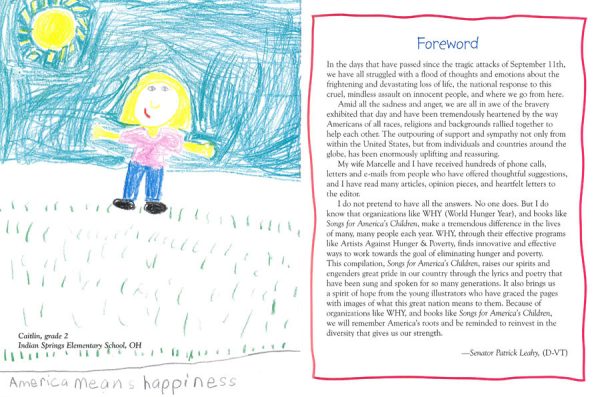 Caitlin, grade 2
Indian Springs Elementary School, OH
America means happiness
Foreword
In the days that have passed since the tragic attacks of September 11th,
we have all struggled with a flood of thoughts and emotions about the
frightening and devastating loss of life, the national response to this
cruel, mindless assault on innocent people, and where we go from here.
Amid all the sadness and anger, we are all in awe of the bravery
exhibited that day and have been tremendously heartened by the way
Americans of all races, religions and backgrounds rallied together to
help each other. The outpouring of support and sympathy not only from
within the United States, but from individuals and countries around the
globe, has been enormously uplifting and reassuring.
My wife Marcelle and I have received hundreds of phone calls,
letters and e-mails from people who have offered thoughtful suggestions,
and I have read many articles, opinion pieces, and heartfelt letters to
the editor.
I do not pretend to have all the answers. No one does. But I do
know that organizations like WHY (World Hunger Year), and books like
Songs for America's Children, make a tremendous difference in the lives
of many, many people each year. WHY, through their effective programs
like Artists Against Hunger & Poverty, finds innovative and effective
ways to work towards the goal of eliminating hunger and poverty.
This compilation, Songs for America's Children, raises our spirits and
engenders great pride in our country through the lyrics and poetry that
have been sung and spoken for so many generations. It also brings us
a spirit of hope from the young illustrators who have graced the pages
with images of what this great nation means to them. Because of
organizations like WHY, and books like Songs for America's Children,
we will remember America's roots and be reminded to reinvest in the
diversity that gives us our strength.
—Senator Patrick Leahy, (D-VT)